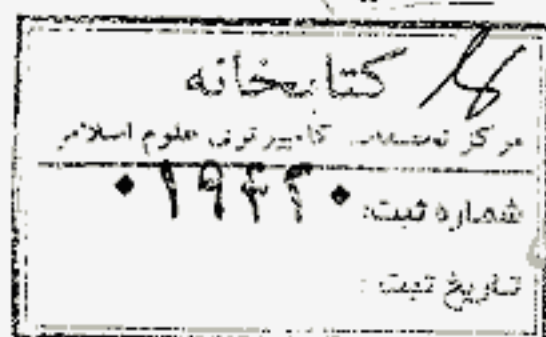 کتابخانه
مرکز تحقیقات کامپیوتری علوم اسلامی
شماره ثبت: ۰۱۹۴۲۰
تاریخ ثبت :